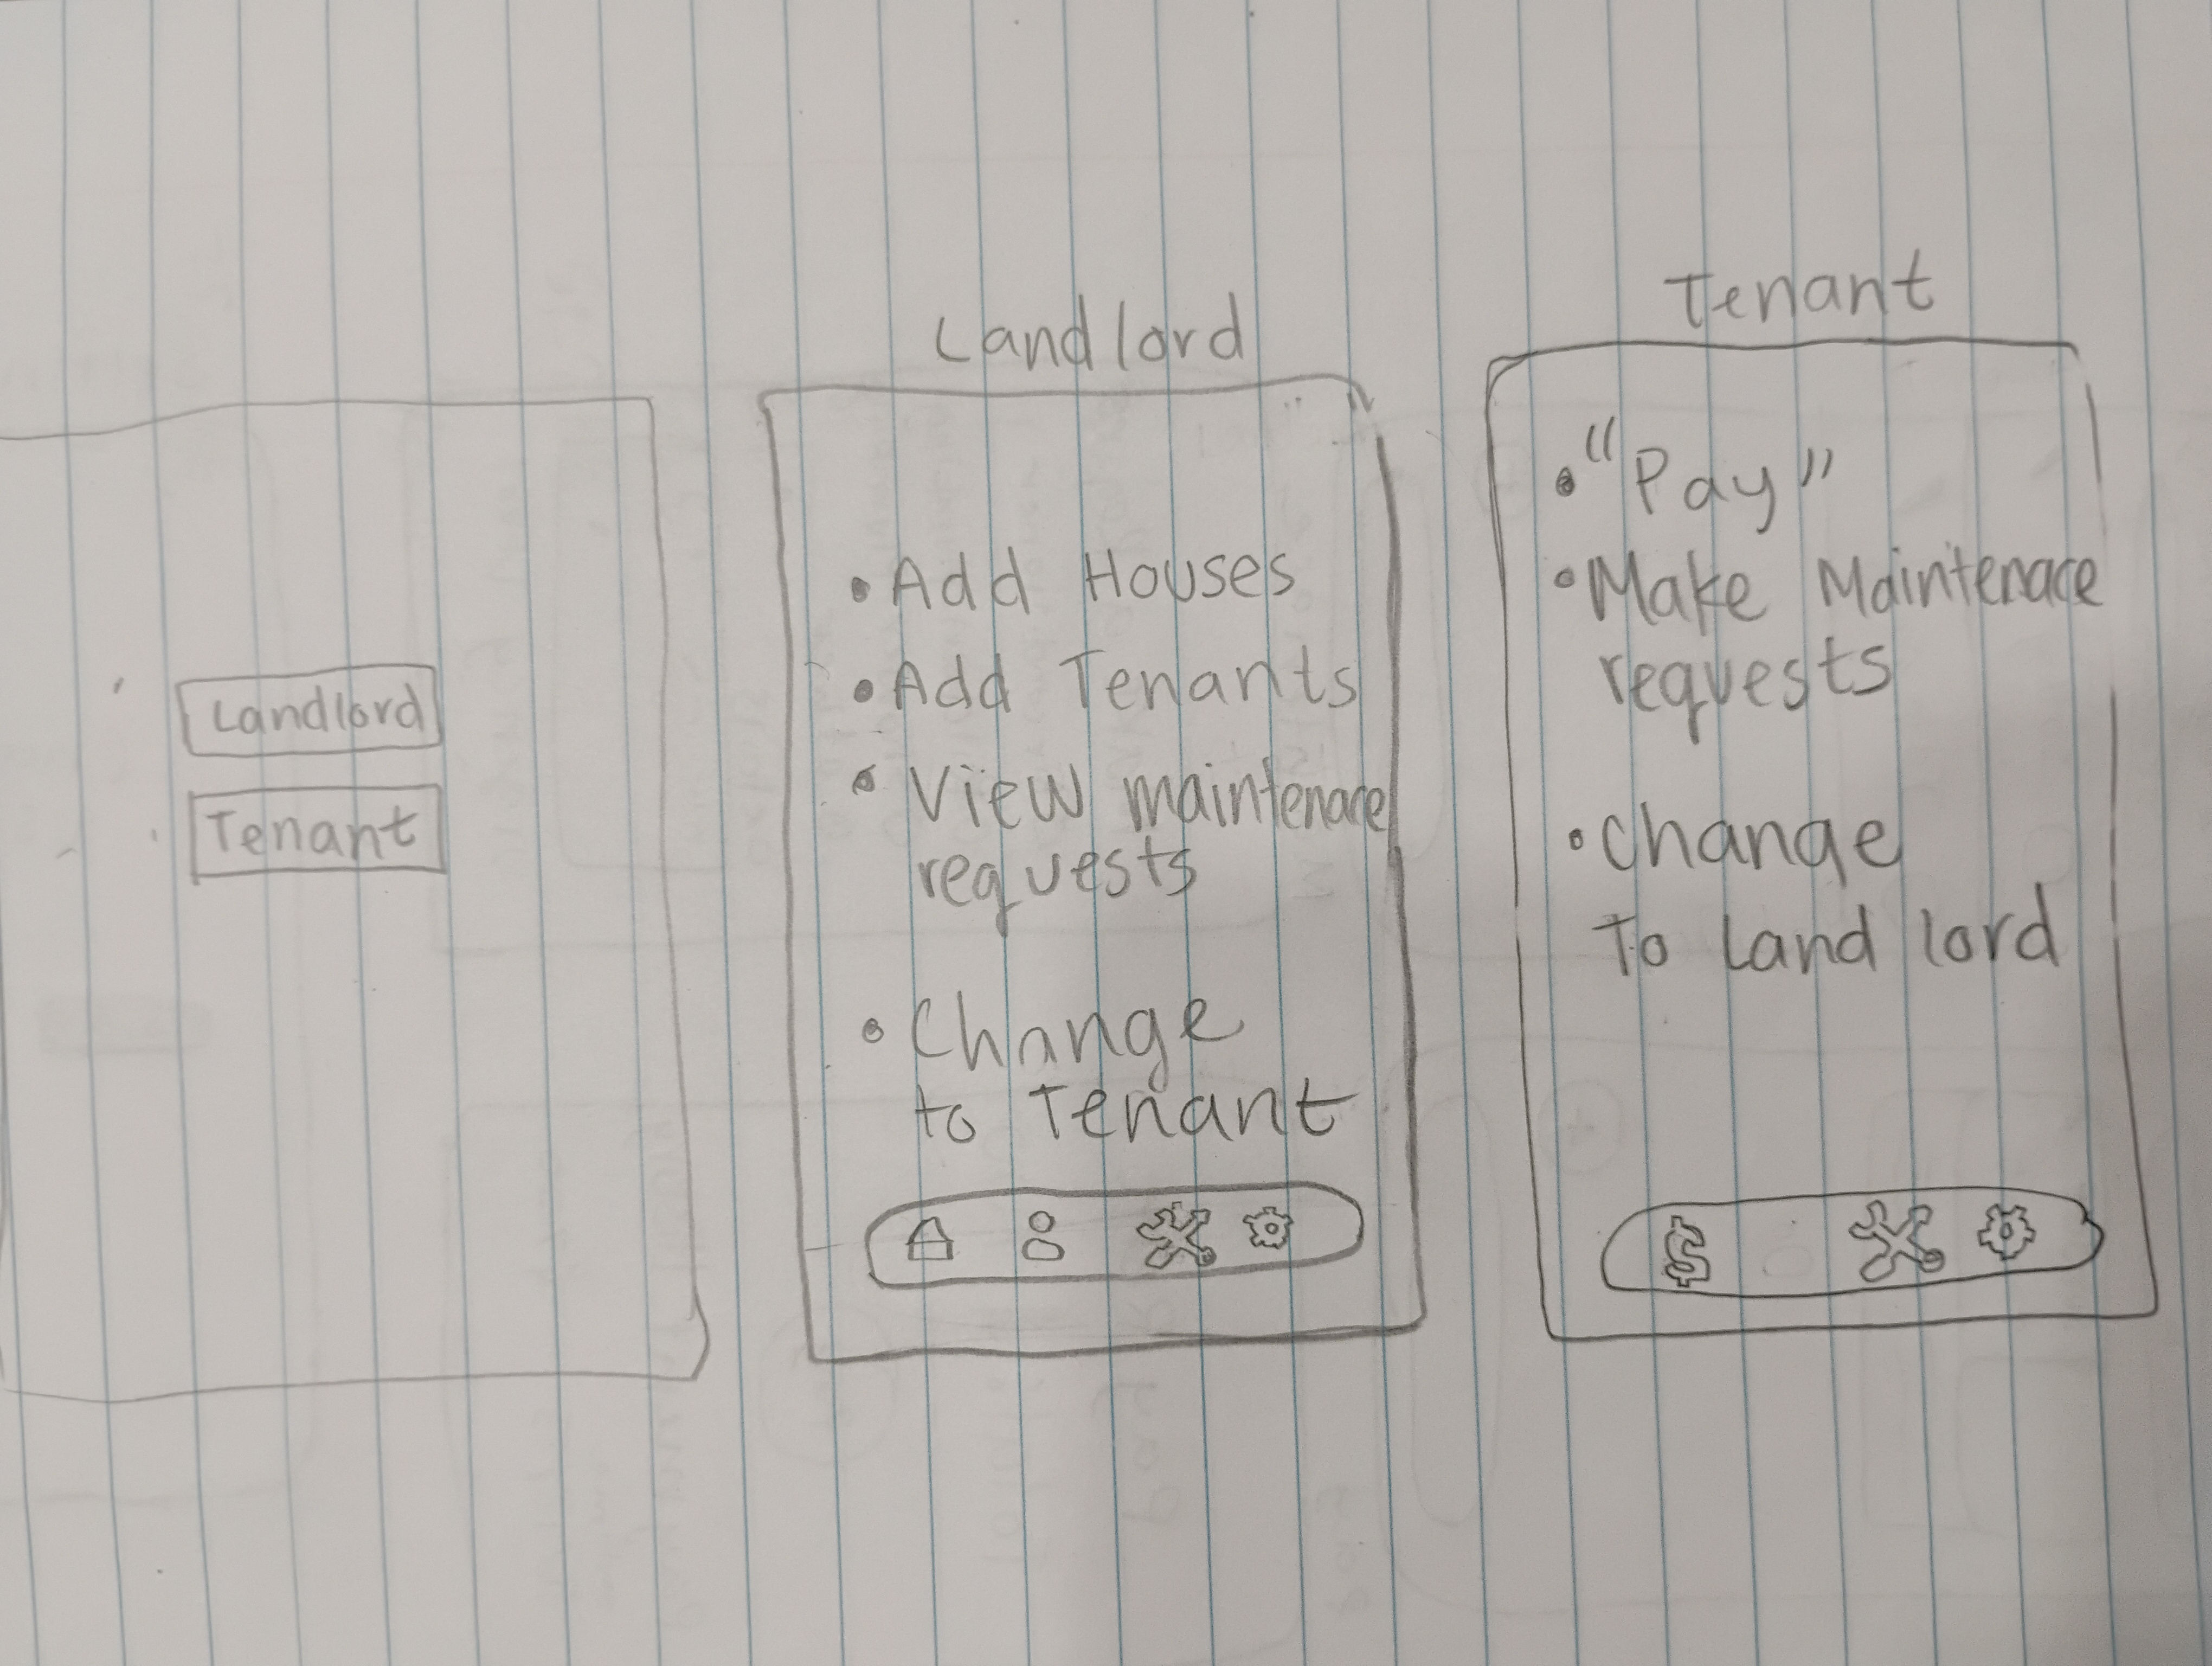 Landlord
Tenant
Landlord
• Add Houses
• Add Tenants
• View maintenace
requests
• Change
to Tenant
Tenant
• "Pay"
• Make Maintenace
requests
• Change
To Landlord
$